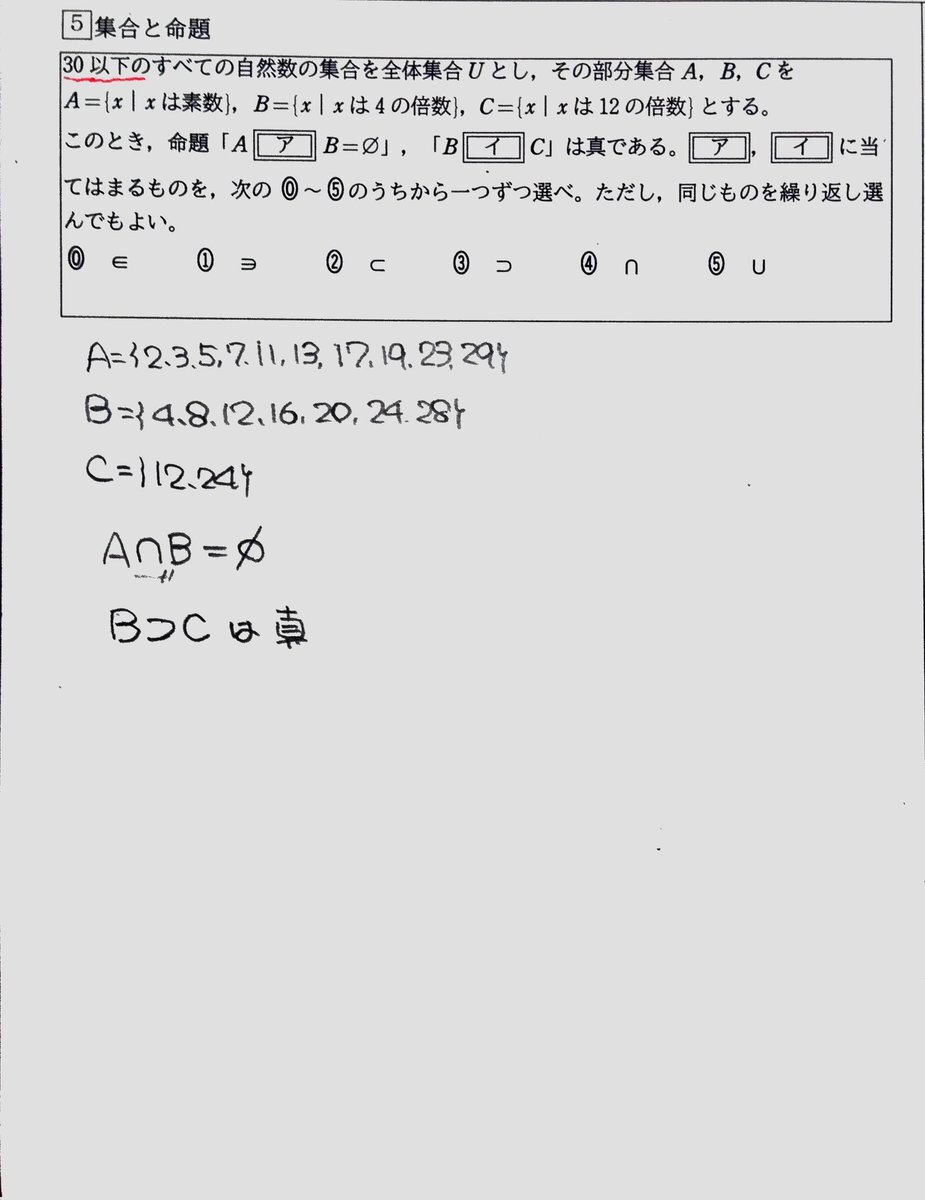 5 集合と命題
30 以下のすべての自然数の集合を全体集合 U とし，その部分集合 A，B，C を
A={x | x は素数}，B={x | x は 4 の倍数}，C={x | x は 12 の倍数} とする。
このとき，命題「A ア B=∅」，「B イ C」は真である。 ア ， イ に当
てはまるものを，次の ⓪～⑤のうちから一つずつ選べ。ただし，同じものを繰り返し選
んでもよい。
⓪ ∈ ① ∋ ② ⊂ ③ ⊃ ④ ∩ ⑤ ∪
A={2、3、5、7、11、13、17、19、23、29}
B={4、8、12、16、20、24、28}
C={12、24}
A∩B=∅
B⊃C は 真